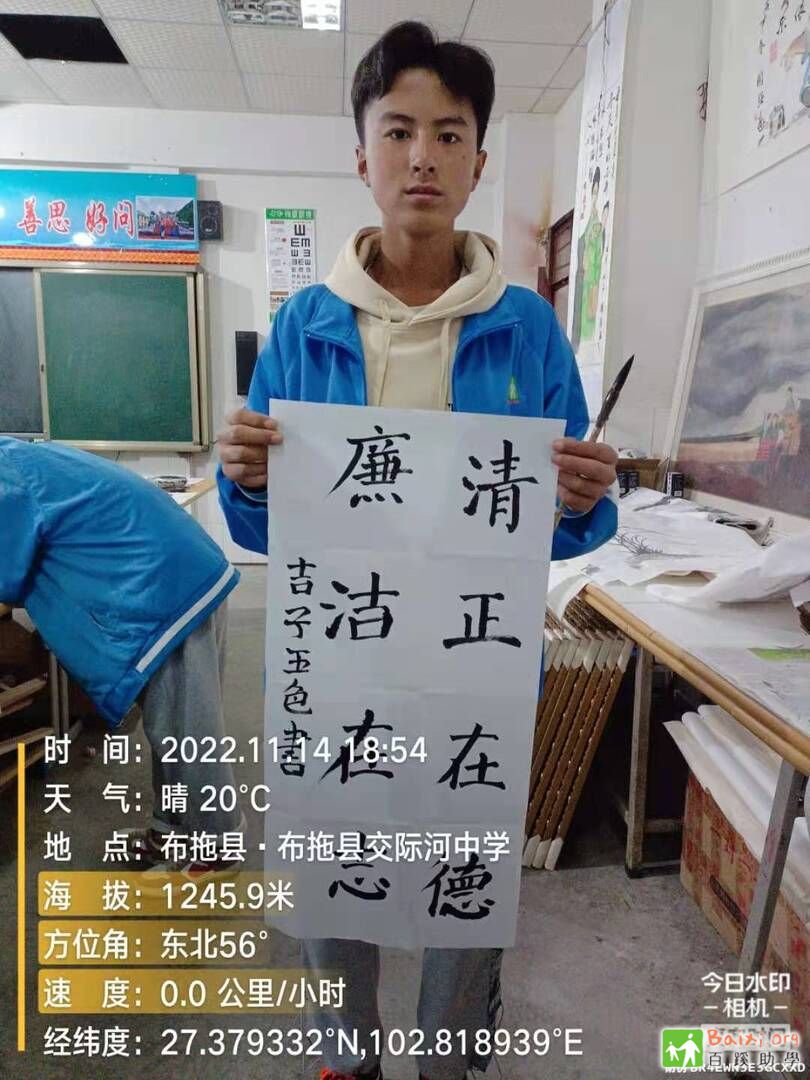 善思 好问
清正在德
廉洁在志
吉子五色書
时 间：2022.11.14 18:54
天 气：晴 20°C
地 点：布拖县·布拖县交际河中学
海 拔：1245.9米
方位角：东北56°
速 度：0.0 公里/小时
经纬度：27.379332°N,102.818939°E
今日水印
相机
Baixi.org
百蹊助學